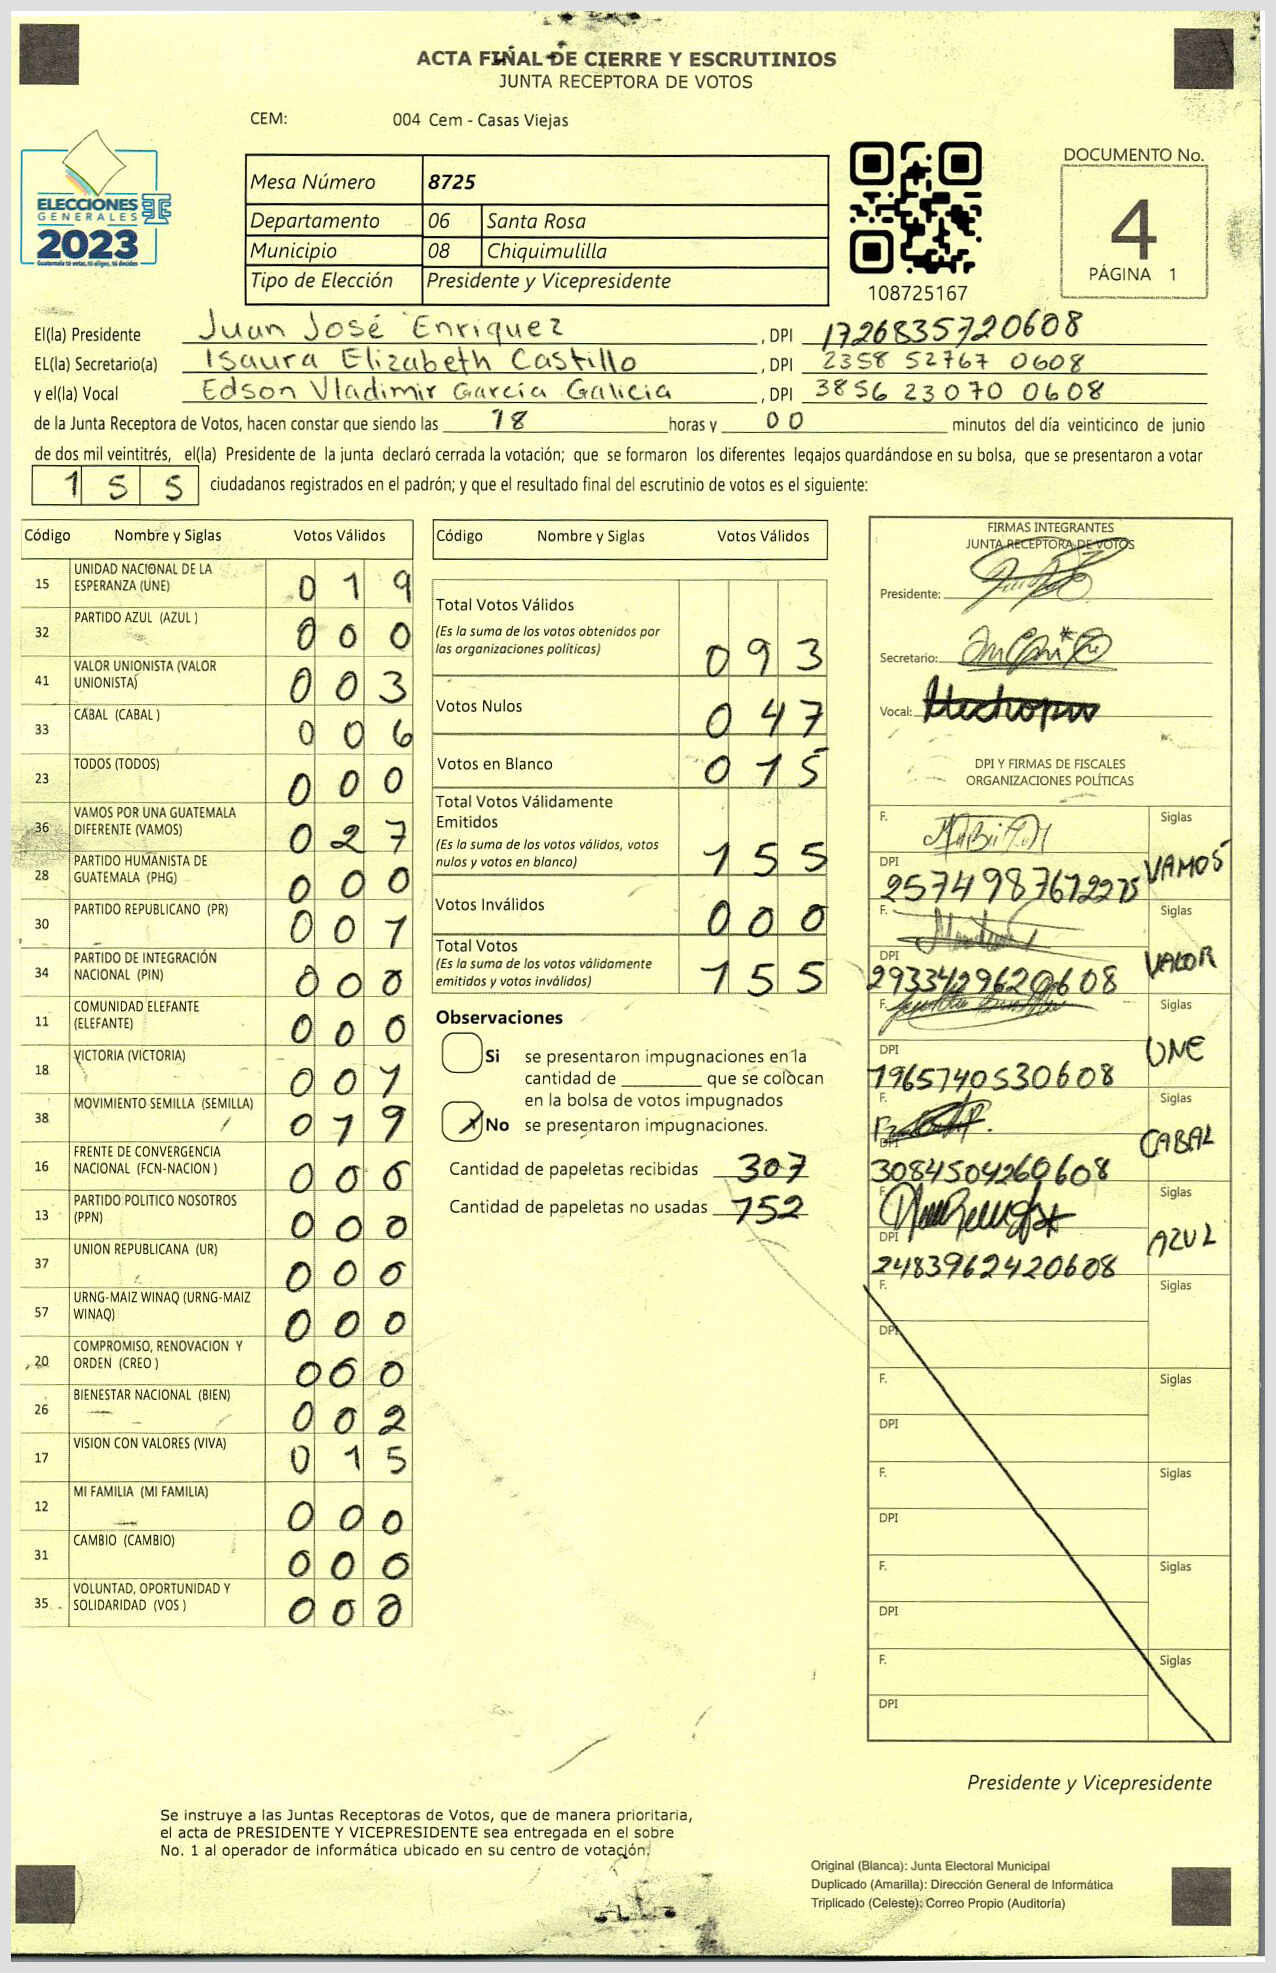 ACTA FINAL DE CIERRE Y ESCRUTINIOS
JUNTA RECEPTORA DE VOTOS
CEM: 004 Cem - Casas Viejas
ELECCIONES
GENERALES
2023
Guatemala tú votas, tú eliges, tú decides
Mesa Número 8725
Departamento 06 Santa Rosa
Municipio 08 Chiquimulilla
Tipo de Elección Presidente y Vicepresidente
108725167
DOCUMENTO No.
4
PÁGINA 1
El(la) Presidente Juan José Enriquez , DPI 1726835720608
EL(la) Secretario(a) Isaura Elizabeth Castillo , DPI 2358 52767 0608
y el(la) Vocal Edson Vladimir García Galicia , DPI 3856 23070 0608
de la Junta Receptora de Votos, hacen constar que siendo las 18 horas y 00 minutos del día veinticinco de junio
de dos mil veintitrés, el(la) Presidente de la junta declaró cerrada la votación; que se formaron los diferentes legajos guardándose en su bolsa, que se presentaron a votar
155 ciudadanos registrados en el padrón; y que el resultado final del escrutinio de votos es el siguiente:
Código Nombre y Siglas Votos Válidos
15 UNIDAD NACIONAL DE LA ESPERANZA (UNE) 019
32 PARTIDO AZUL (AZUL ) 000
41 VALOR UNIONISTA (VALOR UNIONISTA) 003
33 CABAL (CABAL ) 006
23 TODOS (TODOS) 000
36 VAMOS POR UNA GUATEMALA DIFERENTE (VAMOS) 027
28 PARTIDO HUMANISTA DE GUATEMALA (PHG) 000
30 PARTIDO REPUBLICANO (PR) 001
34 PARTIDO DE INTEGRACIÓN NACIONAL (PIN) 000
11 COMUNIDAD ELEFANTE (ELEFANTE) 000
18 VICTORIA (VICTORIA) 001
38 MOVIMIENTO SEMILLA (SEMILLA) 019
16 FRENTE DE CONVERGENCIA NACIONAL (FCN-NACION ) 000
13 PARTIDO POLITICO NOSOTROS (PPN) 000
37 UNION REPUBLICANA (UR) 000
57 URNG-MAIZ WINAQ (URNG-MAIZ WINAQ) 000
20 COMPROMISO, RENOVACION Y ORDEN (CREO ) 000
26 BIENESTAR NACIONAL (BIEN) 002
17 VISION CON VALORES (VIVA) 015
12 MI FAMILIA (MI FAMILIA) 000
31 CAMBIO (CAMBIO) 000
35 VOLUNTAD, OPORTUNIDAD Y SOLIDARIDAD (VOS ) 000
Código Nombre y Siglas Votos Válidos
Total Votos Válidos 093
(Es la suma de los votos obtenidos por
las organizaciones políticas)
Votos Nulos 047
Votos en Blanco 015
Total Votos Válidamente
Emitidos 155
(Es la suma de los votos válidos, votos
nulos y votos en blanco)
Votos Inválidos 000
Total Votos 155
(Es la suma de los votos válidamente
emitidos y votos inválidos)
Observaciones
Si se presentaron impugnaciones en la
cantidad de ________ que se colocan
en la bolsa de votos impugnados
X No se presentaron impugnaciones.
Cantidad de papeletas recibidas 307
Cantidad de papeletas no usadas 152
FIRMAS INTEGRANTES
JUNTA RECEPTORA DE VOTOS
Presidente:
Secretario:
Vocal:
DPI Y FIRMAS DE FISCALES
ORGANIZACIONES POLÍTICAS
F. Siglas VAMOS
DPI
F. Siglas VALOR
DPI 2933429620608
F. Siglas UNE
DPI 1965740530608
F. Siglas CABAL
DPI 3084504260608
F. Siglas AZUL
DPI 2483962420608
F. Siglas
DPI
F. Siglas
DPI
F. Siglas
DPI
F. Siglas
DPI
F. Siglas
DPI
Presidente y Vicepresidente
Se instruye a las Juntas Receptoras de Votos, que de manera prioritaria,
el acta de PRESIDENTE Y VICEPRESIDENTE sea entregada en el sobre
No. 1 al operador de informática ubicado en su centro de votación.
Original (Blanca): Junta Electoral Municipal
Duplicado (Amarilla): Dirección General de Informática
Triplicado (Celeste): Correo Propio (Auditoría)